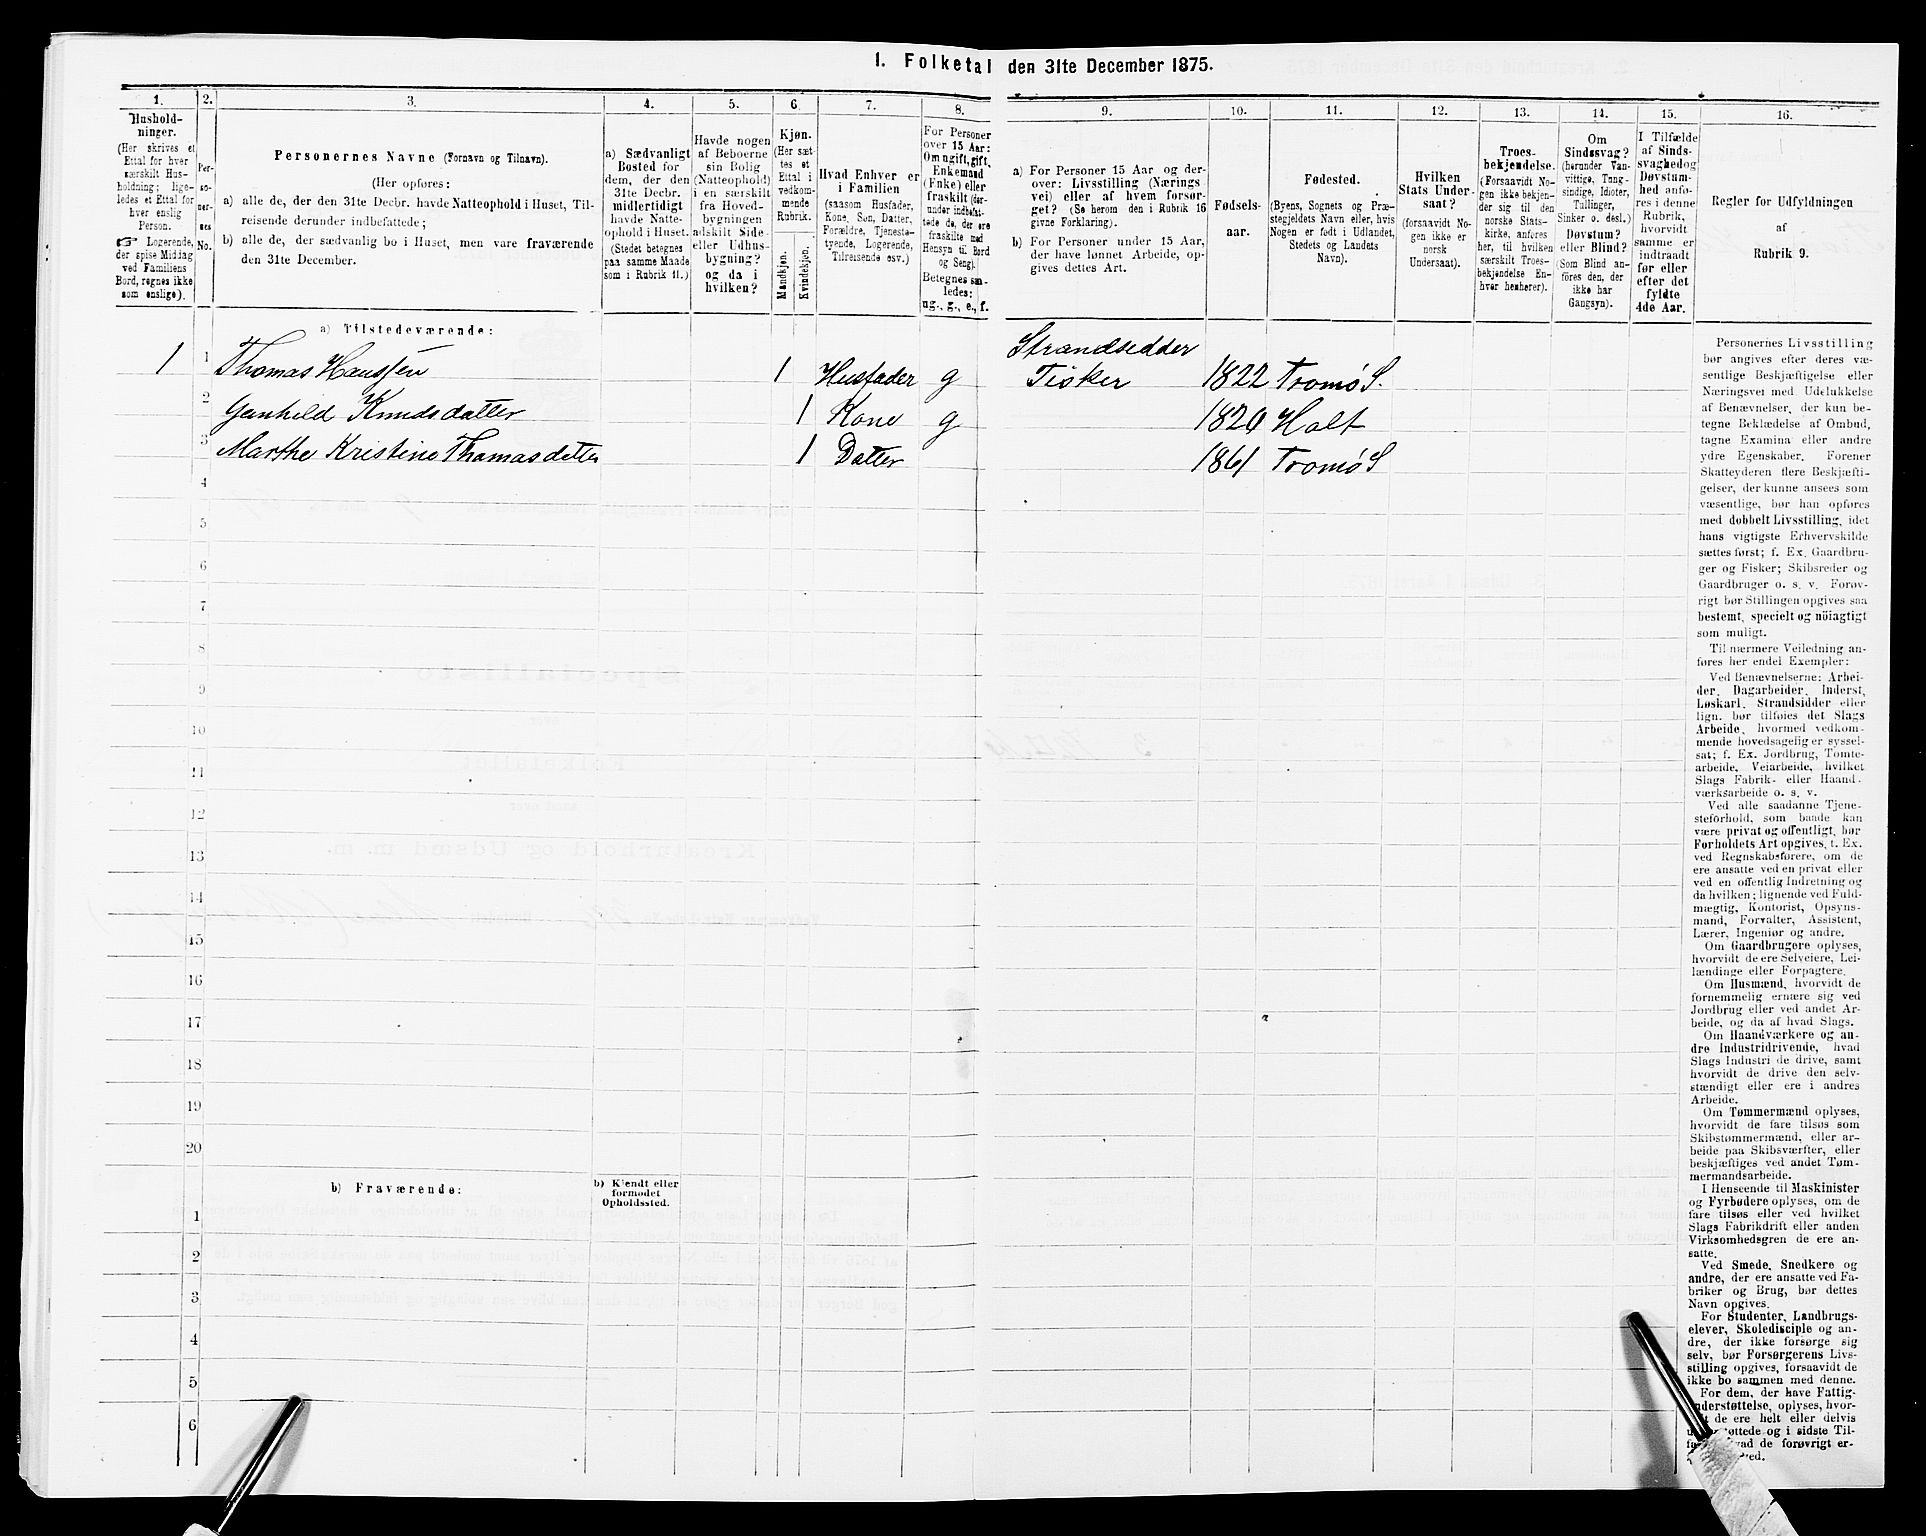 1. Folketal den 31te December 1875.
1.
2.
3.
4.
5.
6.
7.
8.
9.
10.
11.
12.
13.
14.
15.
16.
Hushold-
ninger.
(Her skrives et
Ettal for hver
særskilt Hus-
holdning; lige-
ledes et Ettal for
hver enslig
Person.
☞ Logerende,
der spise Middag
ved Familiens
Bord, regnes ikke
som enslige).
Per-
so-
ner-
nes
No.
Personernes Navne (Fornavn og Tilnavn).
(Her opføres:
a) alle de, der den 31te Decbr. havde Natteophold i Huset, Til-
reisende derunder indbefattede;
b) alle de, der sædvanlig bo i Huset, men vare fraværende
den 31te December.
a) Sædvanligt
Bosted for
dem, der den
31te Decbr.
midlertidigt
havde Natte-
ophold i Huset.
(Stedet betegnes
paa samme Maade
som i Rubrik 11.)
Havde nogen
af Beboerne
sin Bolig
(Natteophold)
i en særskilt
fra Hoved-
bygningen
adskilt Side-
eller Udhus-
bygning?
og da i
hvilken?
Kjøn.
(Her sæt-
tes et
Ettal i
vedkom-
mende
Rubrik.
Mandkjøn.
Kvindekjøn.
Hvad Enhver er
i Familien
(saasom Husfader,
Kone, Søn, Datter,
Forældre, Tjeneste-
tyende, Logerende,
Tilreisende osv.)
For Personer
over 15 Aar:
Om ugift, gift,
Enkemand
(Enke) eller
fraskilt (der-
under indbefat-
tede de, der ere
fraskilte med
Hensyn til Bord
og Seng).
Betegnes saa-
ledes:
ug., g., e., f.
a) For Personer 15 Aar og der-
over: Livsstilling (Nærings
vei) eller af hvem forsør-
get? (Se herom den i Rubrik 16
givne Forklaring).
b) For Personer under 15 Aar,
der have lønnet Arbeide, op-
gives dettes Art.
Fødsels-
aar.
Fødested.
(Byens, Sognets og Præ-
stegjeldets Navn eller, hvis
Nogen er født i Udlandet,
Stedets og Landets
Navn).
Hvilken
Stats Under-
saat?
(forsaavidt No-
gen ikke er
norsk
Undersaat).
Troes-
bekjendelse.
(Forsaavidt No-
gen ikke bekjen-
der sig til den
norske Stats-
kirke, anføres
her, til hvilken
særskilt Troes-
bekjendelse En-
hver henhører).
Om
Sindssvag?
(herunder Van-
vittige, Tung-
sindige, Idioter,
Tullinger,
Sinker o. desl.)
Døvstum?
eller Blind?
(Som Blind an-
føres den, der
ikke har
Gangsyn).
I Tilfælde
af Sinds-
svaghedog
Døvstum-
hed anfø-
res i denne
Rubrik,
hvorvidt
samme er
indtraadt
før eller
efter det
fyldte
4de Aar.
Regler for Udfyldningen
af
Rubrik 9.
a) Tilstedeværende:
1 1 Thomas Hanssen 1 Husfader g Strandsidder
Fisker 1822 Tromø S.
2 Gunhild Knudsdatter 1 Kone g 1820 Holt
3 Marthe Kristine Thomasdatter 1 Datter 1861 Tromø S
4
5
6
7
8
9
10
11
12
13
14
15
16
17
18
19
20
b) Fraværende:
b) Kjendt eller
formodet
Opholdssted.
1
2
3
4
5
6
Personernes Livsstilling
bør angives efter deres væ-
sentlige Beskjæftigelse eller
Næringsvei med Udelukkelse
af Benævnelser, der kun be-
tegne Beklædelse af Ombud,
tagne Examina eller andre
ydre Egenskaber. Forener
Skatteyderen flere Beskjæfti-
gelser, der kunne ansees som
væsentlige, bør han opføres
med dobbelt Livsstilling, idet
hans vigtigste Erhvervskilde
sættes først; f. Ex. Gaardbru-
ger og Fisker; Skibsreder og
Gaardbruger o. s. v. Forøv-
rigt bør Stillingen opgives saa
bestemt, specielt og nöiagtigt
som muligt.
Til nærmere Veiledning an-
føres her endel Exempler:
Ved Benævnelserne: Arbei-
der, Dagarbeider, Inderst,
Løskarl, Strandsidder eller
lign. bør tilføies det Slags
Arbeide, hvormed vedkom-
mende hovedsagelig er syssel-
sat; f. Ex. Jordbrug, Tomte-
arbeide, Veiarbeide, hvilket
Slags Fabrik- eller Haand-
værksarbeide o. s. v.
Ved alle saadanne Tjene-
steforhold, som baade kan
være privat og offentligt, bør
Forholdets Art opgives, t. Ex.
ved Regnskabsførere, om de
ere ansatte ved en privat eller
ved en offentlig Indretning og
da hvilken; lignende ved Fuld-
mægtig, Kontorist, Opsyns-
mand, Forvalter, Assistent,
Lærer, Ingeniør og andre.
Om Gaardbrugere oplyses,
hvorvidt de ere Selveiere, Lei-
lændinge eller Forpagtere.
Om Husmænd, hvorvidt de
fornemmelig ernære sig ved
Jordbrug eller ved andet Ar-
beide, og da af hvad Slags.
Om Haandværkere og an-
dre Industridrivende, hvad
Slags Industri de drive, samt
hvorvidt de drive den selv-
stændigt eller ere i andres
Arbeide.
Om Tømmermænd oplyses,
hvorvidt de fare tilsøs som
Skibstømmermænd, eller ar-
beide paa Skibsværfter, eller
beskjæftiges ved andet Tøm-
mermandsarbeide.
I Henseende til Maskinister
og Fyrbødere oplyses, om de
fare tilsøs eller ved hvilket
Slags Fabrikdrift eller anden
Virksomhedsgren de ere an-
satte.
Ved Smede, Snedkere og
andre, der ere ansatte ved Fa-
briker og Brug, bør dettes
Navn opgives.
For Studenter, Landbrugs-
elever, Skoledisciple og an-
dre, der ikke forsørge sig
selv, bør Forsørgerens Livs-
stilling opgives, forsaavidt de
ikke bo sammen med denne.
For dem, der have Fattig-
understøttelse, oplyses, hvor-
de ere helt eller delvis
og i sidste Til-
de forøvrigt er-